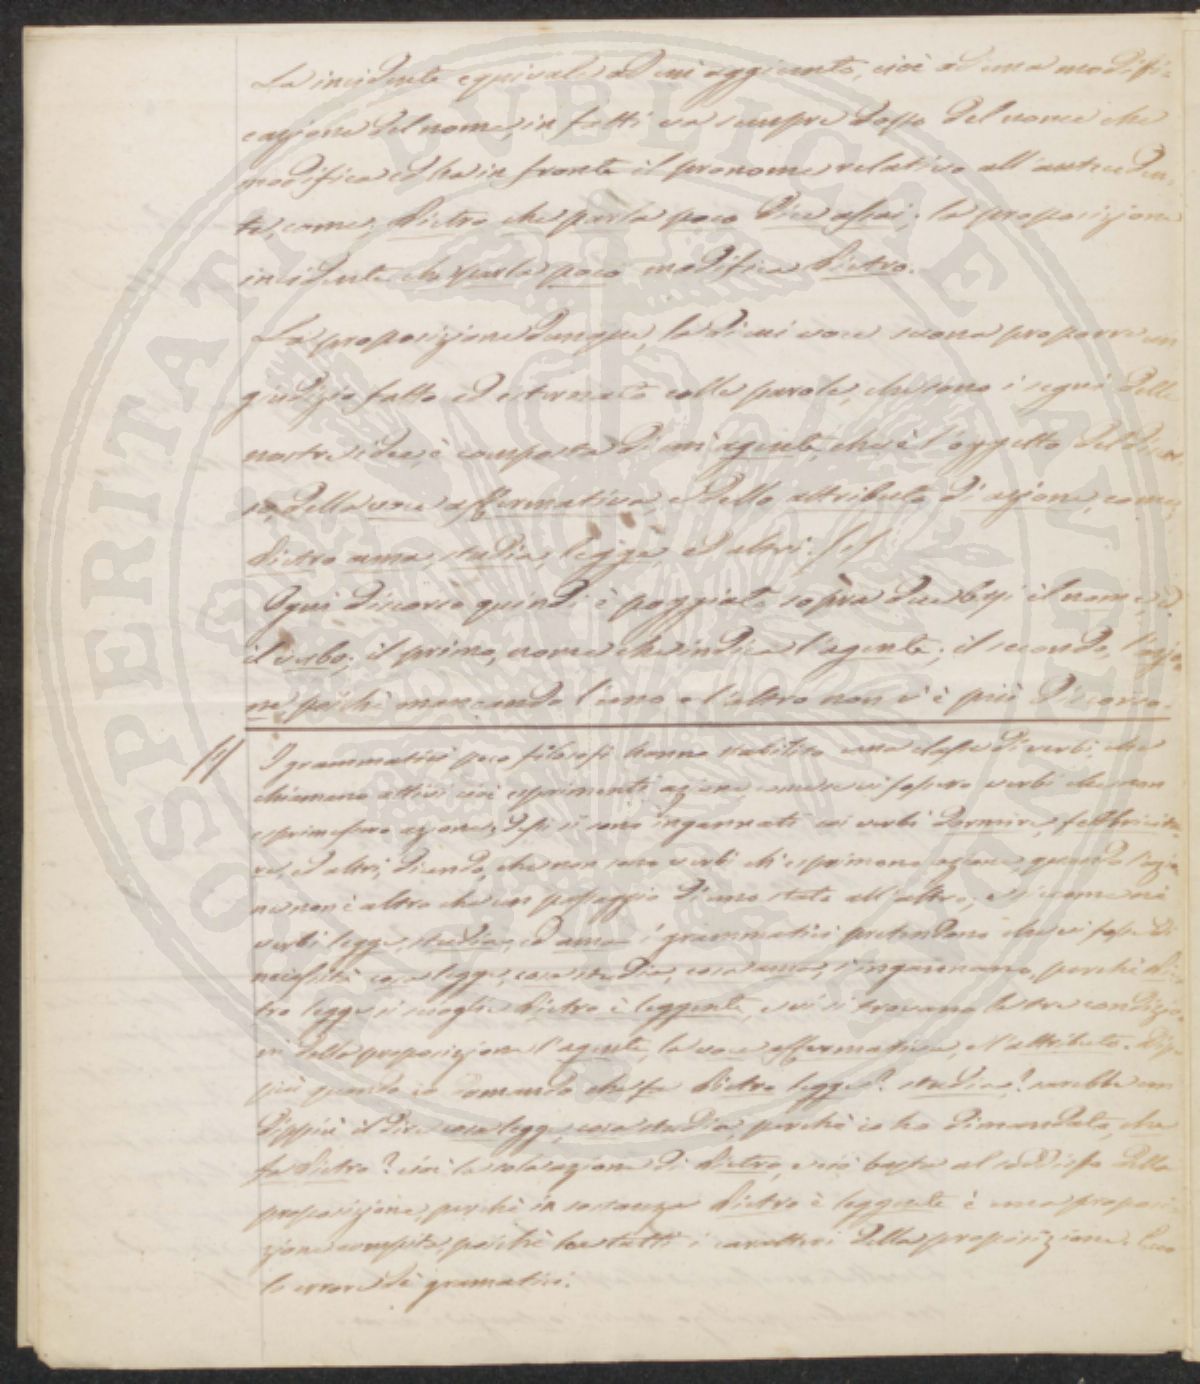 La incidente equivale ad un'aggiunto, cioè ad una modifi-
cazione del nome, in fatti va sempre dopo del nome che
modifica ed ha in fronte il pronome relativo all'anteceden-
te, come, Pietro che parla poco dice assai, la proposizione
incidente che parla poco modifica Pietro.
La proposizione dunque, la di cui voce suona proporre un
giudizio fatto ed esternato colle parole, che sono i segni delle
nostre idee, è composta di un'agente, che è l'oggetto del discor-
so, della voce affermativa, e dello attributo di azione, come,
Pietro ama, studia, legge, ed altri. (1)
Ogni discorso quindi è poggiato sopra due basi il nome, e
il verbo; il primo, nome che indica l'agente; il secondo, l'azio-
ne, poichè mancando l'uno o l'altro non v'è più discorso.
(1) I grammatici poco filosofi hanno stabilito una classe di verbi, che
chiamano attivi cioè esprimenti azione, come se vi fossero verbi che non
esprimessero azione; Essi si sono ingannati coi verbi dormire, febbricita-
re, ed altri, dicendo, che non sono verbi ch'esprimono azione, quando l'azio-
ne non è altro che un passaggio di uno stato all'altro, e siccome nei
verbi legge, studia, ed ama i grammatici pretendono che vi fosse di
necessità cosa legge, cosa studia, cosa ama, s'ingannano, perchè Pie-
tro legge si scioglie Pietro è leggente, e vi si trovano le tre condizio-
ni della proposizione l'agente, la voce affermativa, e l'attributo. Dip-
più quando io domando che fa Pietro legge? studia? sarebbe un
dippiù il dire cosa legge, cosa studia, perchè io ho dimandato, che
fa Pietro? cioè la sola azione di Pietro, e ciò basta al soddisfo della
proposizione, perchè in sostanza Pietro è leggente è una proposi-
zione compita, poichè ha tutti i caratteri della proposizione. Ecco
lo errore de' gramatici.
SPERITATI PUBLICAE